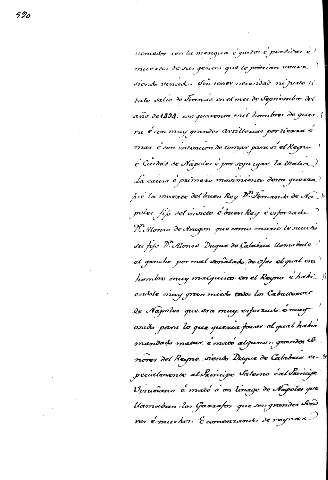 590
vencedor con la mengua é gastos é perdidas é
muertes de sus gentes que lo podrian
siendo vencido. Sin tener necesidad ni justo ti
tulo salio de Francia en el mes de Septiembre del
año de 1494 con quarenta mil hombres de guer
ra é con muy grandes artillerias por tierra é
mar é con intencion de tomar para sí el Reyno
é Ciudad de Napoles é por sojuzgar la Italia
La causa é primero movimiento desta guerra
fue la muerte del buen Rey Dn. Fernando de Na
poles fijo del inclito é buen Rey é esforzado
Dn. Alonso de Aragon que como murio le sucedio
su fijo Dn. Alonso Duque de Calabria llamabanlo
el gancho por mal señalado de ojos el qual era
hombre muy malquisto en el Reyno é habi
endole muy gran miedo todos los Caballeros
de Napoles que era muy esforzado é muy
crudo para lo que queria facer el qual habia
mandado matar é mató algunos grandes se
ñores del Reyno siendo Duque de Calabria es
pecialmente al Principe Salerno é al Principe
é mató á un linage de Napoles que
llamaban los que son grandes Seño
res é muchos. E comenzando de reynar